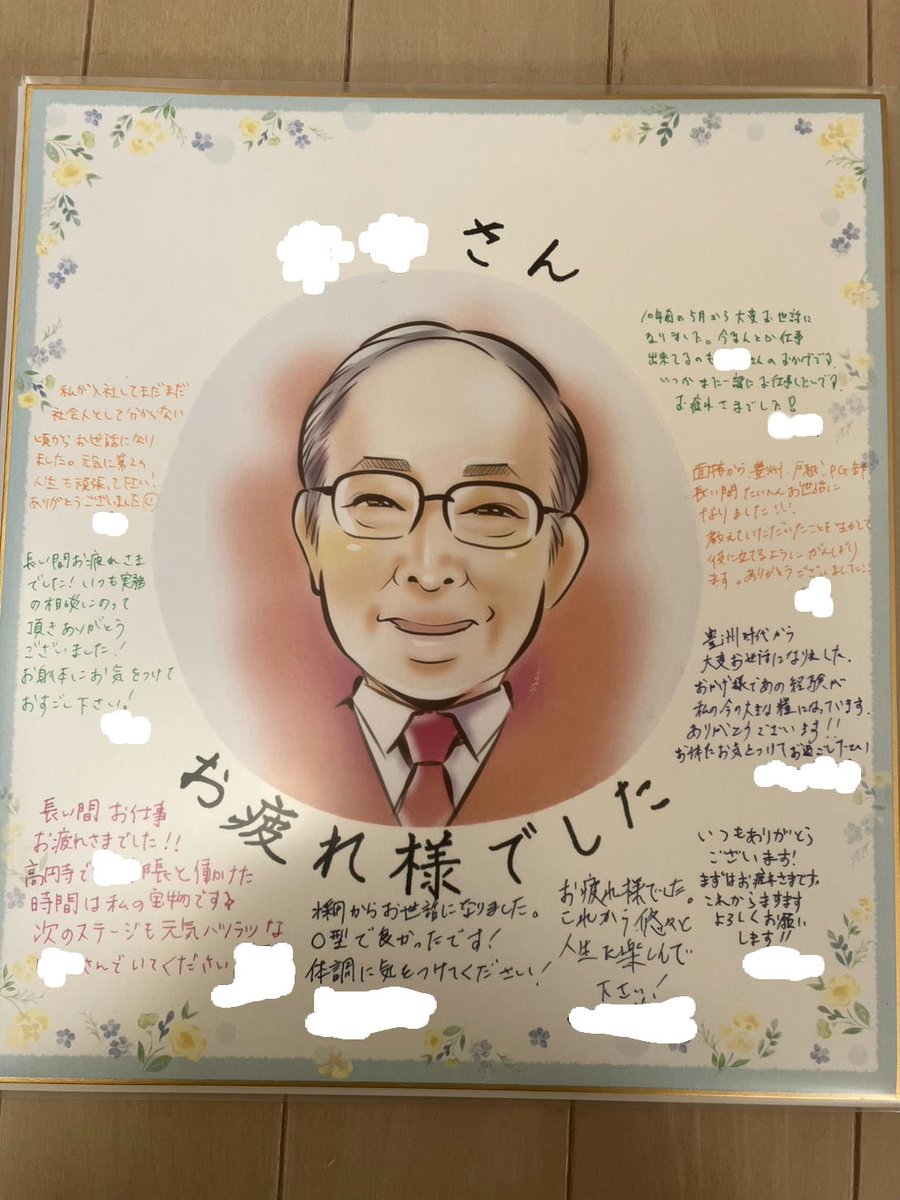 さん
お疲れ様でした
10年前の5月から大変お世話に
なりました。今なんとか仕事
出来てるのも さんのおかげです。
いつかまた一緒にお仕事したいです。
お疲れさまでした!
私が入社してまだまだ
社会人として分からない
頃からお世話になり
ました。元気に第2の
人生も頑張って下さい!
ありがとうございました
面接から、豊洲、戸越、P.G部
長い間たいへんお世話に
なりました!!!
教えていただいたことを生かして
役に立てるようにがんばり
ます。ありがとうございました!!
長い間お疲れさま
でした!いつも実務
の相談にのって
頂きありがとう
ございました!
お身体にお気をつけて
おすごし下さい!
豊洲時代から
大変お世話になりました。
おかげ様であの経験が
私の今の大きな糧になっています。
ありがとうございます!!
お体にお気をつけてお過ごし下さい
長い間お仕事
お疲れさまでした!!
高円寺で 長と働けた
時間は私の宝物です
次のステージも元気ハツラツな
さんでいてください
からお世話になりました。
O型で良かったです!
体調に気をつけてください!
お疲れ様でした。
これから悠々と
人生を楽しんで
下さい!
いつもありがとう
ございます!
まずはお疲れさまです。
これからますます
よろしくお願い
します!!